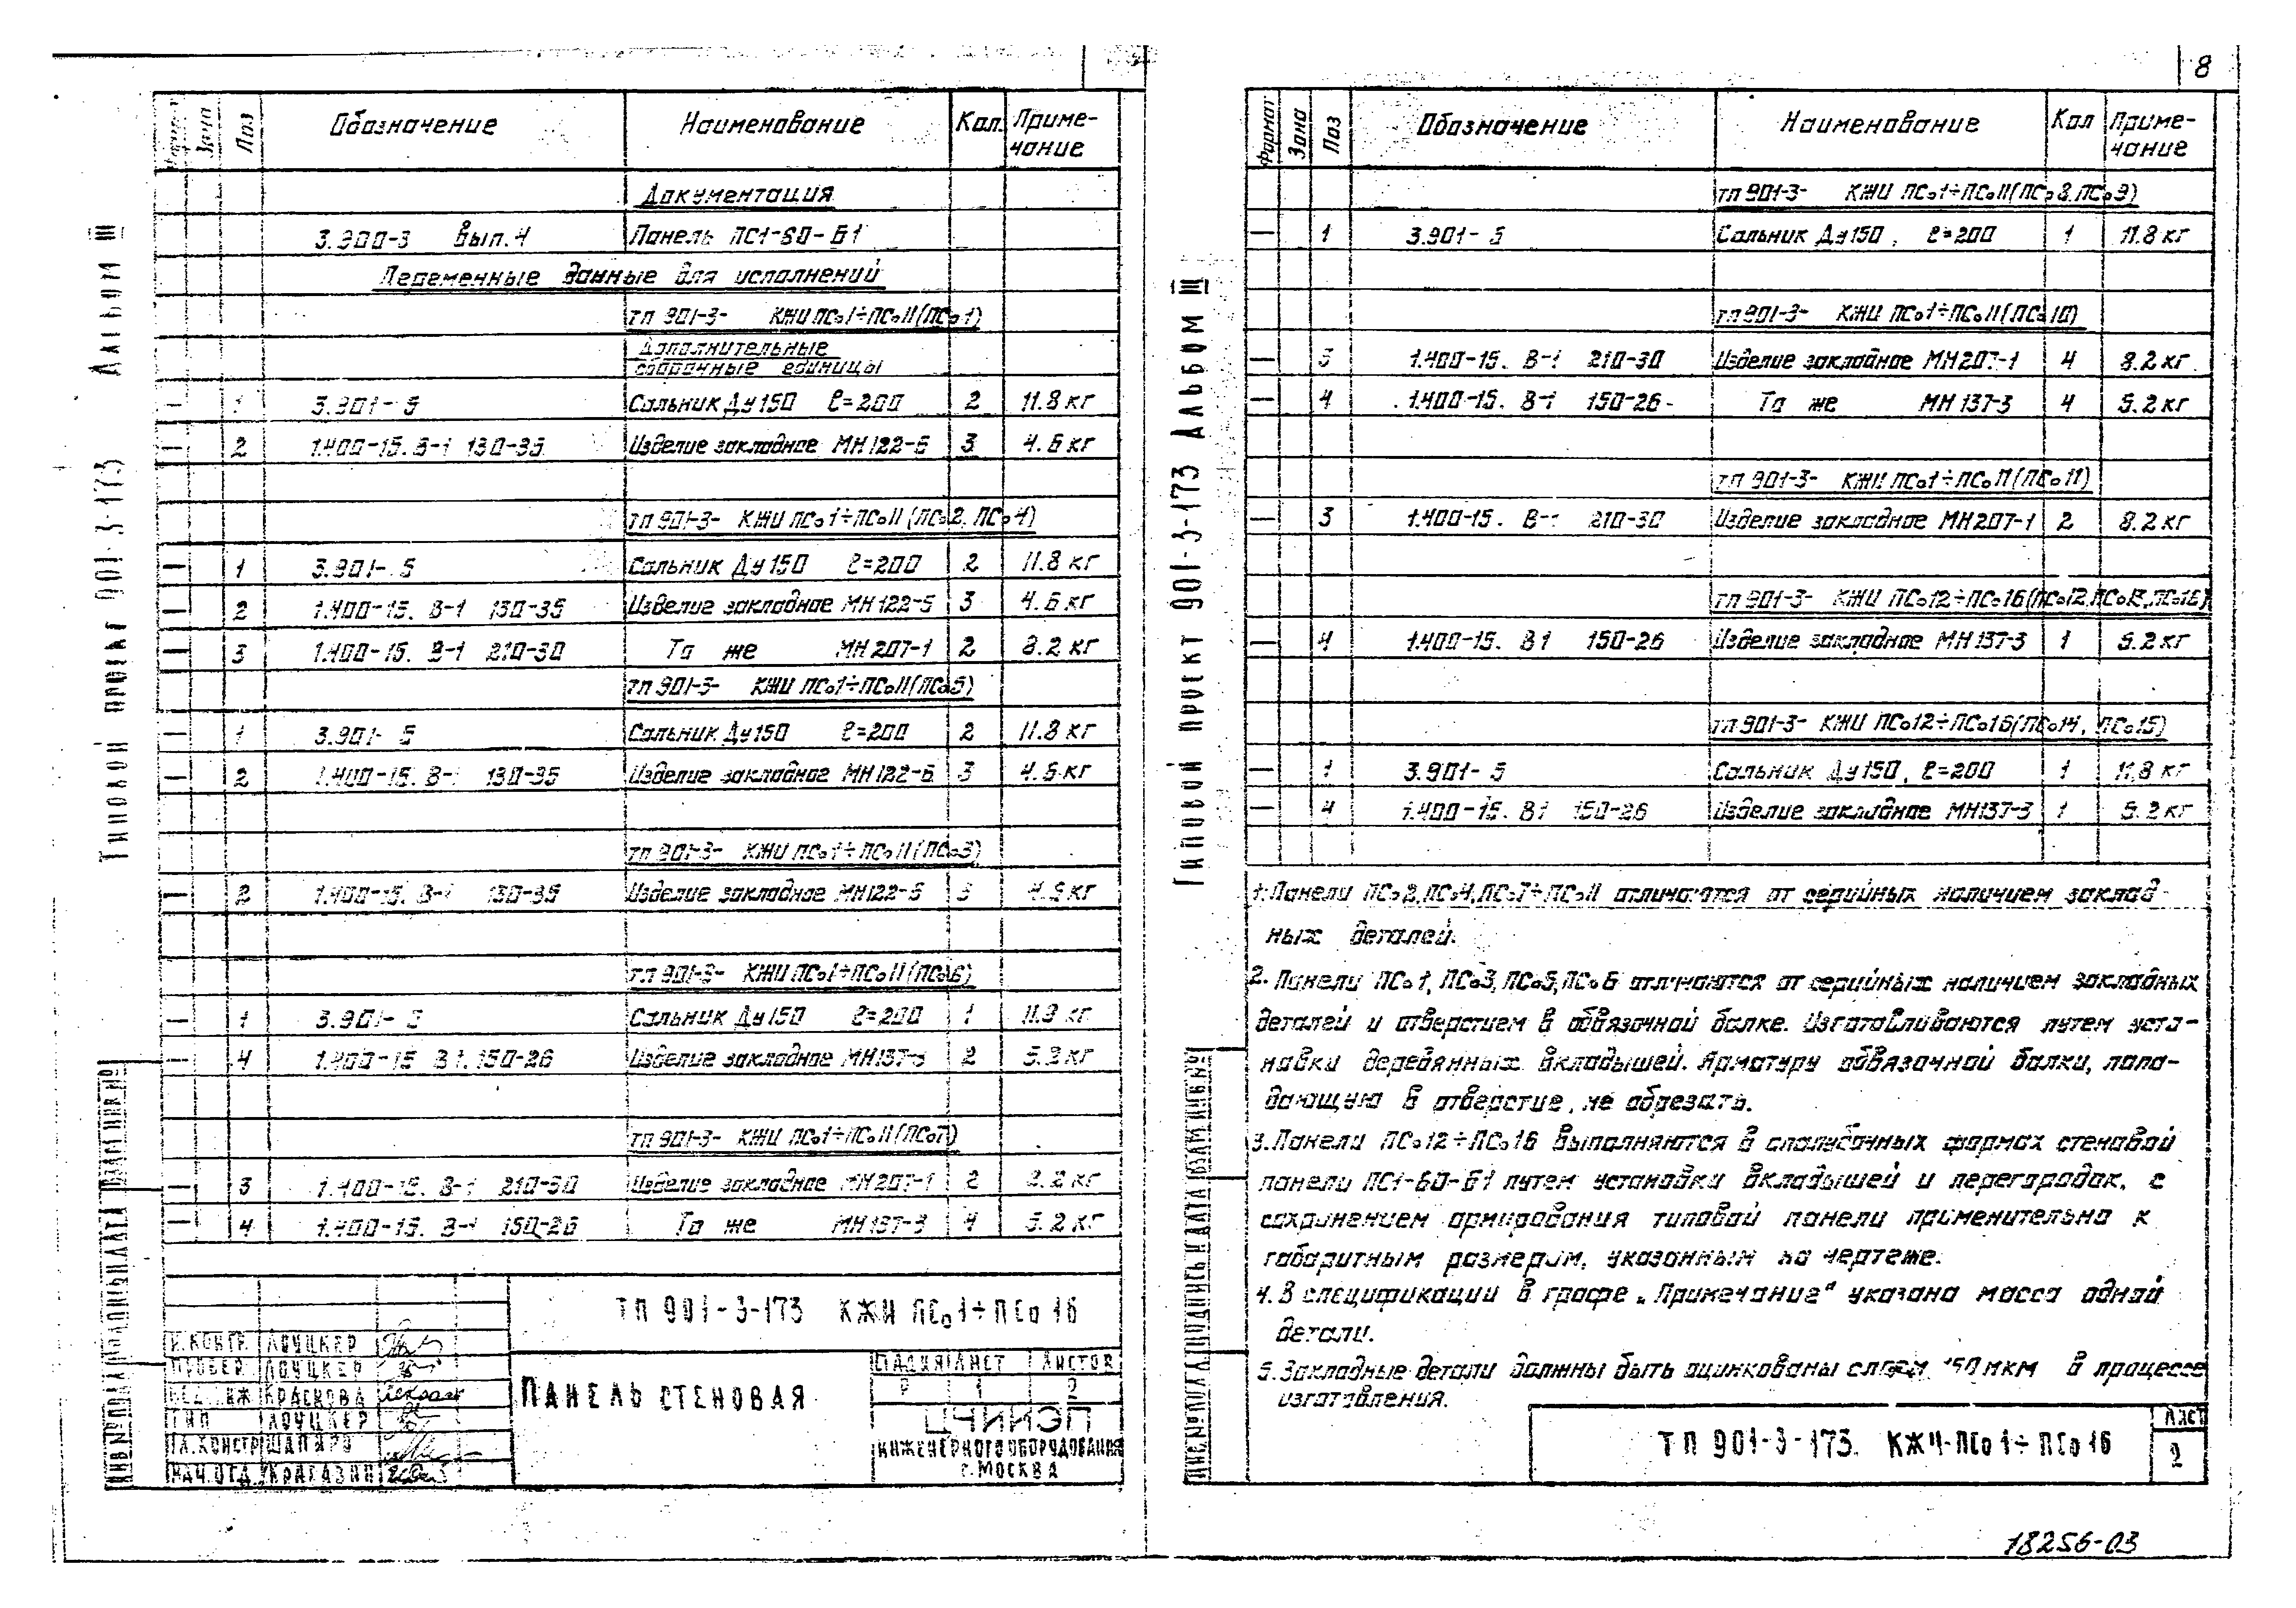 8
Альбом III
Типовой проект 901-3-173
Зона
Поз
Обозначение
Наименование
Кол.
Приме-
чание
Документация
3.900-3 Вып.4
Панель ПС1-60-Б1
Переменные данные для исполнений
тп 901-3- КЖИ ПСо1÷ПСо11(ПСо1)
Дополнительные
сборочные единицы
— 1 3.901-5 Сальник Ду150 ℓ=200 2 11.8 кг
— 2 1.400-15. В-1 130-35 Изделие закладное МН122-5 3 4.6 кг
тп 901-3- КЖИ ПСо1÷ПСо11(ПСо2, ПСо4)
— 1 3.901-5 Сальник Ду150 ℓ=200 2 11.8 кг
— 2 1.400-15. В-1 130-35 Изделие закладное МН122-5 3 4.6 кг
— 3 1.400-15. В-1 210-30 То же МН207-1 2 8.2 кг
тп 901-3- КЖИ ПСо1÷ПСо11(ПСо5)
— 1 3.901-5 Сальник Ду150 ℓ=200 2 11.8 кг
— 2 1.400-15. В-1 130-35 Изделие закладное МН122-5 3 4.6 кг
тп 901-3- КЖИ ПСо1÷ПСо11(ПСо3)
— 2 1.400-15. В-1 130-35 Изделие закладное МН122-5 3 4.6 кг
тп 901-3- КЖИ ПСо1÷ПСо11(ПСо6)
— 1 3.901-5 Сальник Ду150 ℓ=200 1 11.8 кг
— 4 1.400-15 В1. 150-26 Изделие закладное МН137-3 2 5.2 кг
тп 901-3- КЖИ ПСо1÷ПСо11(ПСо7)
— 3 1.400-15. В-1 210-30 Изделие закладное МН207-1 2 8.2 кг
— 4 1.400-15. В-1 150-26 То же МН137-3 4 5.2 кг
ТП 901-3-173 КЖИ ПСо1÷ПСо16
Н.контр. Лоуцкер
Провер. Лоуцкер
Вед. инж Краскова
ГИП Лоуцкер
Гл.констр Шапиро
Нач.отд.
Панель стеновая
Стадия Лист Листов
Р 1 2
ЦНИИЭП
инженерного оборудования
г. Москва
Альбом III
Типовой проект 901-3-173
Формат
Зона
Поз
Обозначение
Наименование
Кол
Приме-
чание
тп 901-3- КЖИ ПСо1÷ПСо11(ПСо8, ПСо9)
— 1 3.901-5 Сальник Ду150, ℓ=200 1 11.8 кг
тп 901-3- КЖИ ПСо1÷ПСо11(ПСо10)
— 3 1.400-15. В-1 210-30 Изделие закладное МН207-1 4 8.2 кг
— 4 1.400-15. В-1 150-26 То же МН137-3 4 5.2 кг
тп 901-3- КЖИ ПСо1÷ПСо11(ПСо11)
— 3 1.400-15. В-1 210-30 Изделие закладное МН207-1 2 8.2 кг
тп 901-3- КЖИ ПСо12÷ПСо16(ПСо12, ПСо13, ПСо16)
— 4 1.400-15. В1 150-26 Изделие закладное МН137-3 1 5.2 кг
тп 901-3- КЖИ ПСо12÷ПСо16(ПСо14, ПСо15)
— 1 3.901-5 Сальник Ду150, ℓ=200 1 11.8 кг
— 4 1.400-15. В1 150-26 Изделие закладное МН137-3 1 5.2 кг
1. Панели ПСо2, ПСо4, ПСо7÷ПСо11 отличаются от серийных наличием заклад-
ных деталей.
2. Панели ПСо1, ПСо3, ПСо5, ПСо6 отличаются от серийных наличием закладных
деталей и отверстием в обвязочной балке. Изготавливаются путем уста-
новки деревянных вкладышей. Арматуру обвязочной балки, попа-
дающую в отверстие, не обрезать.
3. Панели ПСо12÷ПСо16 выполняются в опалубочных формах стеновой
панели ПС1-60-Б1 путем установки вкладышей и перегородок, с
сохранением армирования типовой панели применительно к
габаритным размерам, указанным на чертеже.
4. В спецификации в графе „Примечание" указана масса одной
детали.
5. Закладные детали должны быть оцинкованы слоем 150 мкм в процессе
изготовления.
ТП 901-3-173. КЖИ-ПСо1÷ПСо16
Лист
2
18256-03